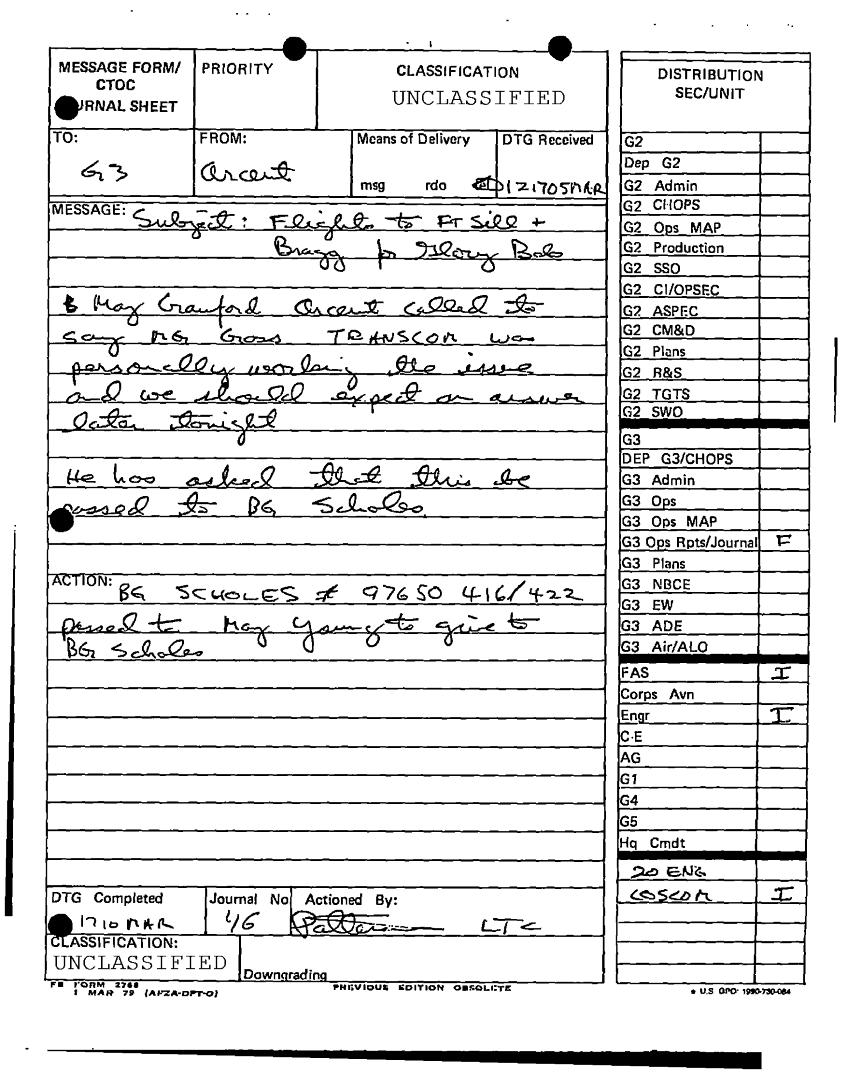 MESSAGE FORM/
CTOC
RNAL SHEET
PRIORITY
CLASSIFICATION
UNCLASSIFIED
TO:
G3
FROM:
Arcent
Means of Delivery
msg rdo
DTG Received
121705MAR
MESSAGE: Subject: Flights to FT Sill +
Bragg for Glory Bob
Maj Crawford Arcent called to
say MG Gross TRANSCOM was
personally working the issue
and we should expect an answer
later tonight
He has asked that this be
passed to BG Scholes.
ACTION: BG SCHOLES # 97650 416/422
passed to Maj Young to give to
BG Scholes
DTG Completed
1710 MAR
Journal No
46
Actioned By:
LTC
CLASSIFICATION:
UNCLASSIFIED
Downgrading
FB FORM 2768
1 MAR 79 (AFZA-DPT-O)
PREVIOUS EDITION OBSOLETE
DISTRIBUTION
SEC/UNIT
G2
Dep G2
G2 Admin
G2 CHOPS
G2 Ops MAP
G2 Production
G2 SSO
G2 CI/OPSEC
G2 ASPEC
G2 CM&D
G2 Plans
G2 R&S
G2 TGTS
G2 SWO
G3
DEP G3/CHOPS
G3 Admin
G3 Ops
G3 Ops MAP
G3 Ops Rpts/Journal F
G3 Plans
G3 NBCE
G3 EW
G3 ADE
G3 Air/ALO
FAS I
Corps Avn
Engr I
C-E
AG
G1
G4
G5
Hq Cmdt
20 ENG
COSCOM I
* U.S. GPO: 1990-730-084